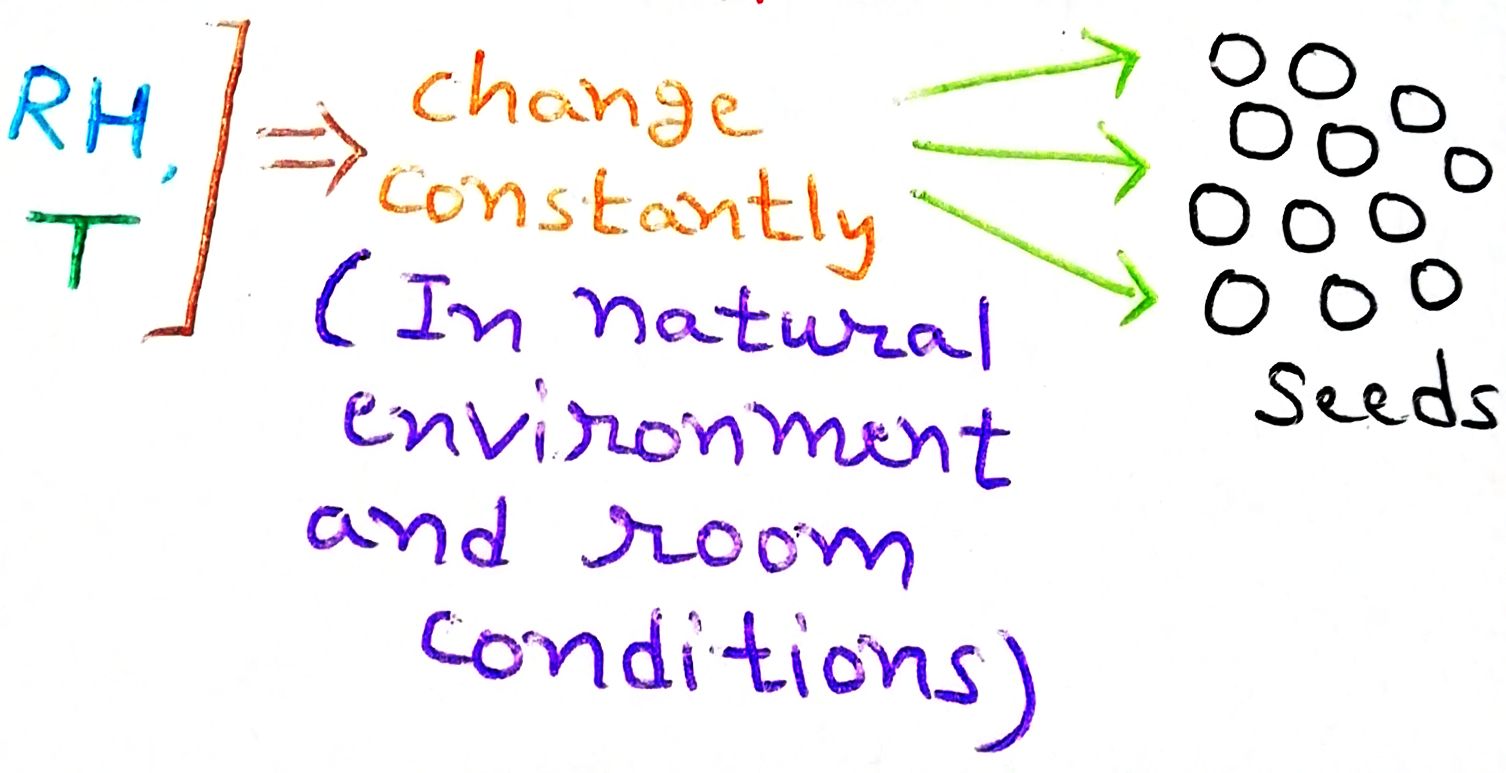 RH,
T
change
constantly
(In natural
environment
and room
conditions)
Seeds